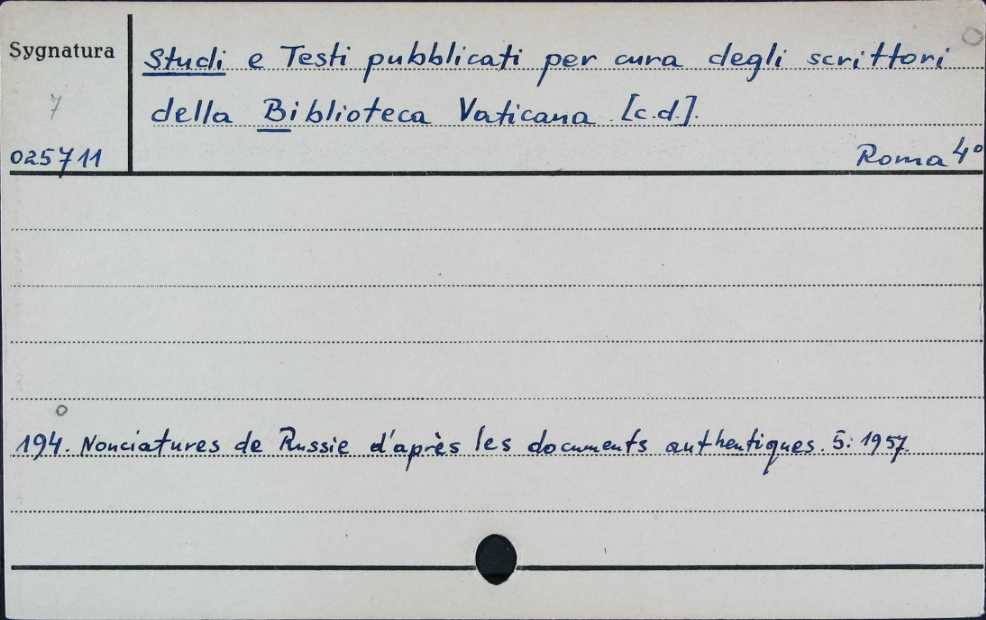 Sygnatura
Studi e Testi pubblicati per cura degli scrittori
7
della Biblioteca Vaticana [c.d.].
025711
Roma 4°
194. Nonciatures de Russie d'après les documents authentiques. 5: 1957.